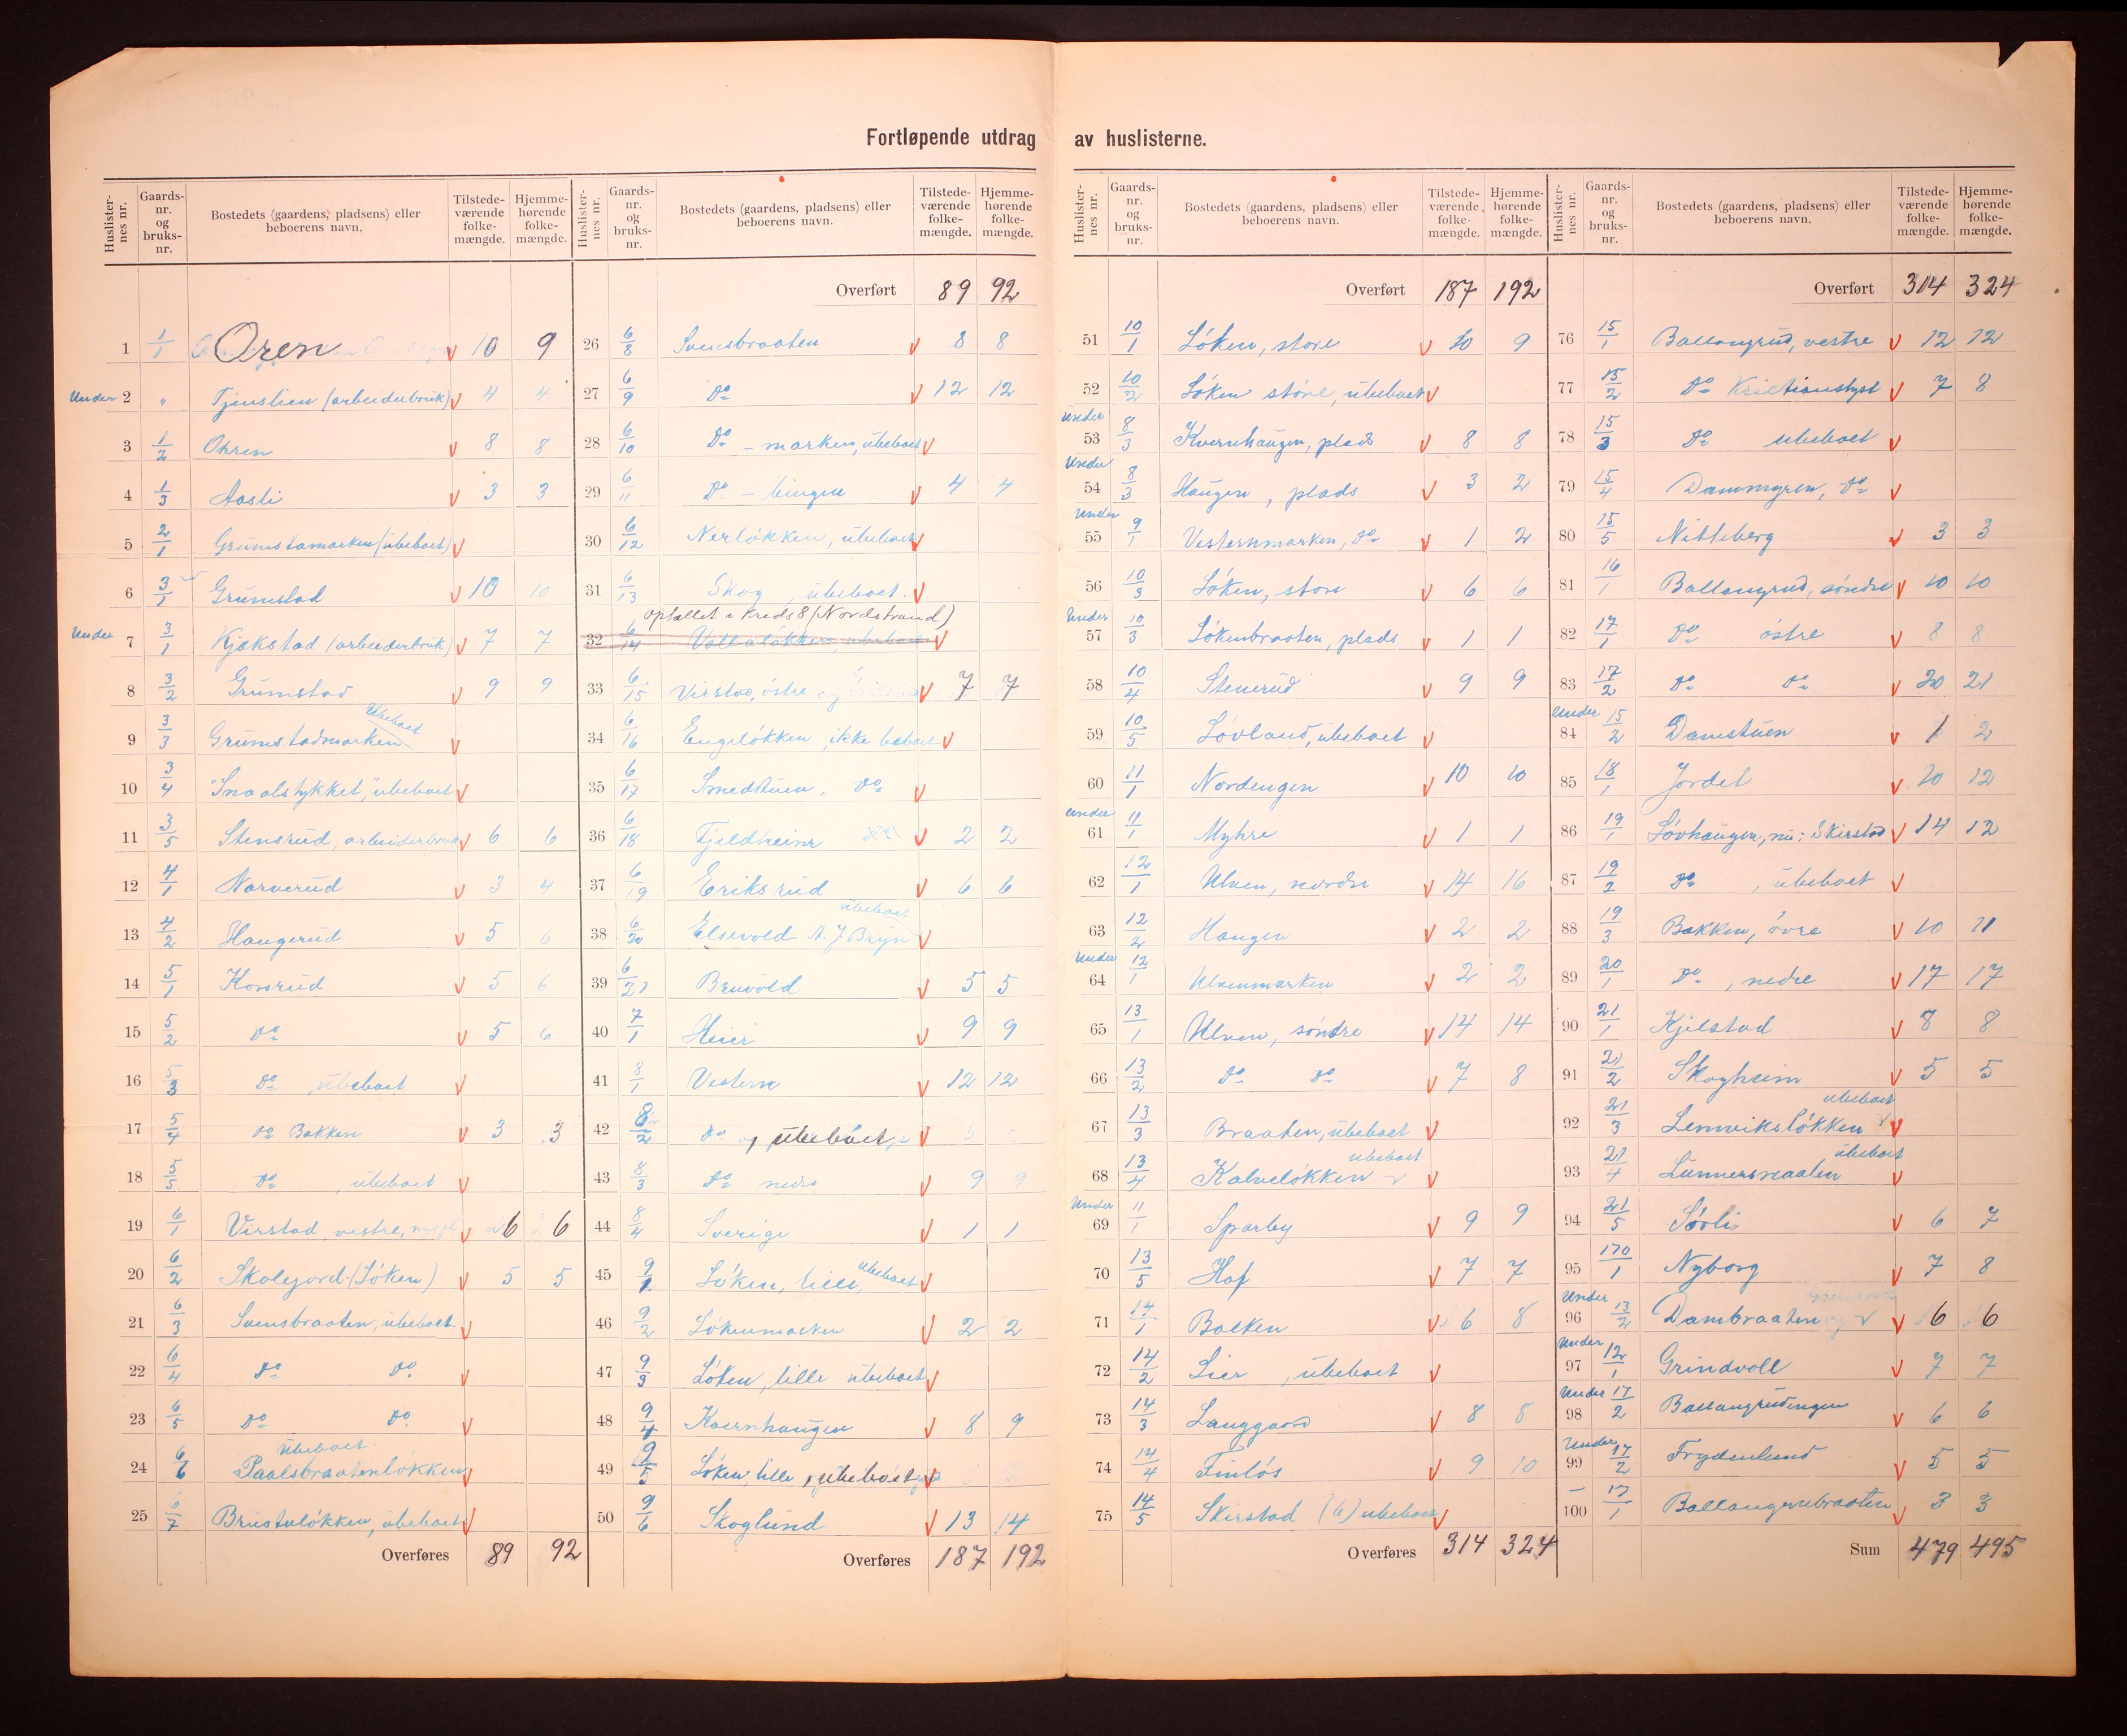 Fortløpende utdrag av huslisterne.
Huslisternes nr. Gaards-nr. og bruks-nr. Bostedets (gaardens, pladsens) eller beboerens navn. Tilstede-værende folke-mængde. Hjemme-hørende folke-mængde.
1 1/1 Oren 10 9
Under 2 " Tjenslien (arbeiderbruk) 4 4
3 1/2 Ohren 8 8
4 1/3 Aasli 3 3
5 2/1 Grumstamarken (ubeboet)
6 3/1 Grumstad 10 10
Under 7 3/1 Kjøkstad (arbeiderbruk) 7 7
8 3/2 Grumstad 9 9
9 3/3 Grumstadmarken ubeboet
10 3/4 "Snaalstykket," ubeboet
11 3/5 Stensrud, arbeiderbruk 6 6
12 4/1 Narverud 3 4
13 4/2 Haugerud 5 6
14 5/1 Korsrud 5 6
15 5/2 do 5 6
16 5/3 do, ubeboet
17 5/4 do Bakken 3 3
18 5/5 do, ubeboet
19 6/1 Virstad vestre, 6 6
20 6/2 Skolejord (Löken) 5 5
21 6/3 Svensbraaten, ubeboet.
22 6/4 do do
23 6/5 do do
24 6/6 Paalsbraatenløkken ubeboet
25 6/7 Brustuløkken, ubeboet
Overføres 89 92
Huslisternes nr. Gaards-nr. og bruks-nr. Bostedets (gaardens, pladsens) eller beboerens navn. Tilstede-værende folke-mængde. Hjemme-hørende folke-mængde.
Overført 89 92
26 6/8 Svensbraaten 8 8
27 6/9 do 12 12
28 6/10 do - marken, ubeboet
29 6/11 do - lingen 4 4
30 6/12 Nerløkken, ubeboet
31 6/13 Skog, ubeboet.
optallet i Kreds 8 (Nordstrand)
32 6/14 Volla løkken, ubeboet
33 6/15 Virstad, østre 7 7
34 6/16 Engeløkken, ikke beboet
35 6/17 Smedstuen, do
36 6/18 Fjeldheim 2 2
37 6/19 Eriksrud 6 6
38 6/20 Elsevold A. J. Bryn ubeboet
39 6/21 Bruvold 5 5
40 7/1 Heier 9 9
41 8/1 Vestern 12 12
42 8/2 do, ubeboet
43 8/3 do nedre 9 9
44 8/4 Sverige 1 1
45 9/1 Løken, lille, ubeboet
46 9/2 Løkenmarken 2 2
47 9/3 Løken, lille ubeboet
48 9/4 Kvernhaugen 8 9
49 9/5 Løken, lille, ubeboet
50 9/6 Skoglund 13 14
Overføres 187 192
Huslisternes nr. Gaards-nr. og bruks-nr. Bostedets (gaardens, pladsens) eller beboerens navn. Tilstede-værende folke-mængde. Hjemme-hørende folke-mængde.
Overført 187 192
51 10/1 Løken, store 10 9
52 10/2 Løken store, ubeboet
Under 53 8/3 Kvernhaugen, plads 8 8
Under 54 8/3 Haugen, plads 3 2
Under 55 9/1 Vesternmarken, do 1 2
56 10/3 Løken, store 6 6
Under 57 10/3 Løkenbraaten, plads 1 1
58 10/4 Stenerud 9 9
59 10/5 Løvland, ubeboet
60 11/1 Nordengen 10 10
Under 61 11/1 Myhre 1 1
62 12/1 Ulven, nordre 14 16
63 12/2 Haugen 2 2
Under 64 12/1 Ulvenmarken 2 2
65 13/1 Ulven, søndre 14 14
66 13/2 do do 7 8
67 13/3 Braaten, ubeboet
68 13/4 Kalveløkken ubeboet
Under 69 11/1 Sparby 9 9
70 13/5 Haf 7 7
71 14/1 Bakken 6 8
72 14/2 Lier, ubeboet
73 14/3 Langgaard 8 8
74 14/4 Finløs 9 10
75 14/5 Skirstad (6) ubeboet
Overføres 314 324
Huslisternes nr. Gaards-nr. og bruks-nr. Bostedets (gaardens, pladsens) eller beboerens navn. Tilstede-værende folke-mængde. Hjemme-hørende folke-mængde.
Overført 314 324
76 15/1 Ballangrud, vestre 12 12
77 15/2 do Kristianslyst 7 8
78 15/3 do ubeboet
79 15/4 Dammyren, do
80 15/5 Nitteberg 3 3
81 16/1 Ballangrud, søndre 10 10
82 17/1 do østre 8 8
83 17/2 do do 20 21
Under 84 15/2 Damstuen 1 2
85 18/1 Jordet 10 12
86 19/1 Løvhaugen, nu: Skirstad 14 12
87 19/2 do, ubeboet
88 19/3 Bakken, øvre 10 11
89 20/1 do, nedre 17 17
90 21/1 Kjelstad 8 8
91 21/2 Skogheim 5 5
92 21/3 Lemviksløkken ubeboet
93 21/4 Lunnersnaaten ubeboet
94 21/5 Søvli 6 7
95 170/1 Nyborg 7 8
Under 96 13/2 Dambraaten 6 6
Under 97 12/1 Grindvoll 7 7
Under 98 17/2 Ballangrudengen 6 6
Under 99 17/2 Frydenlund 5 5
— 100 17/1 Ballangrubraaten 3 3
Sum 479 495